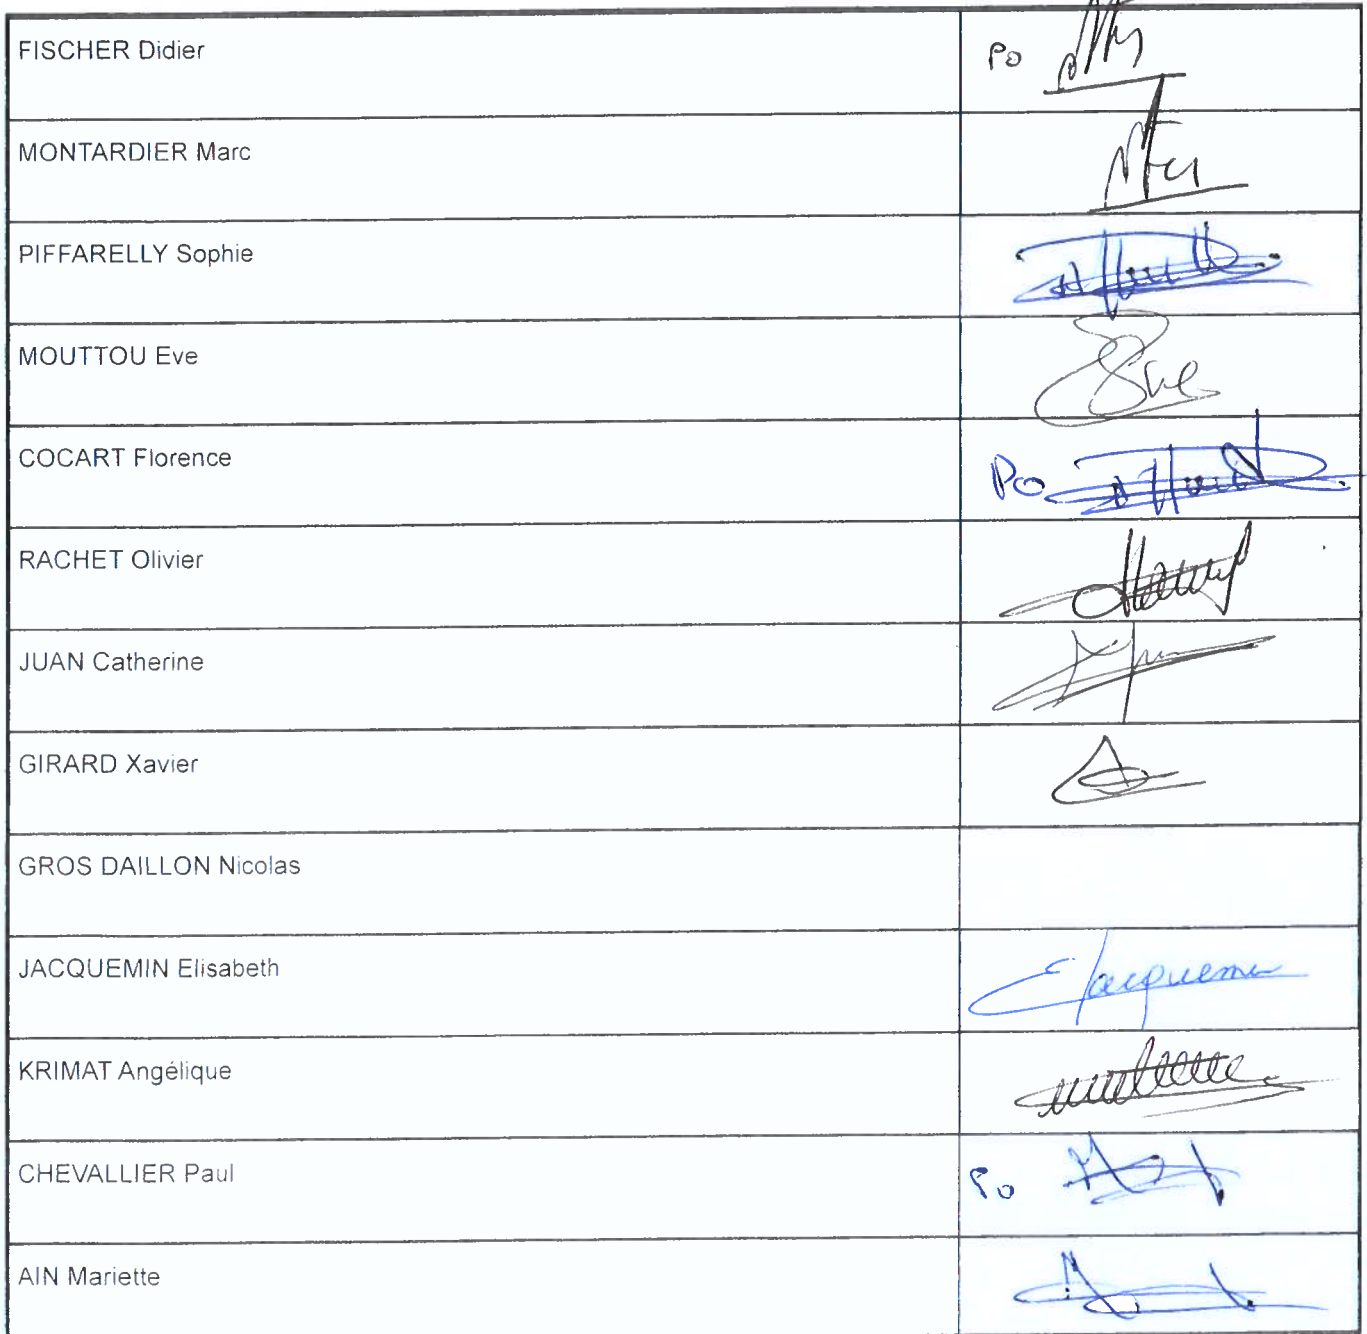 FISCHER Didier
Po
MONTARDIER Marc
PIFFARELLY Sophie
MOUTTOU Eve
Eve
COCART Florence
Po
RACHET Olivier
JUAN Catherine
GIRARD Xavier
GROS DAILLON Nicolas
JACQUEMIN Elisabeth
EJacquemin
KRIMAT Angélique
CHEVALLIER Paul
Po
AIN Mariette